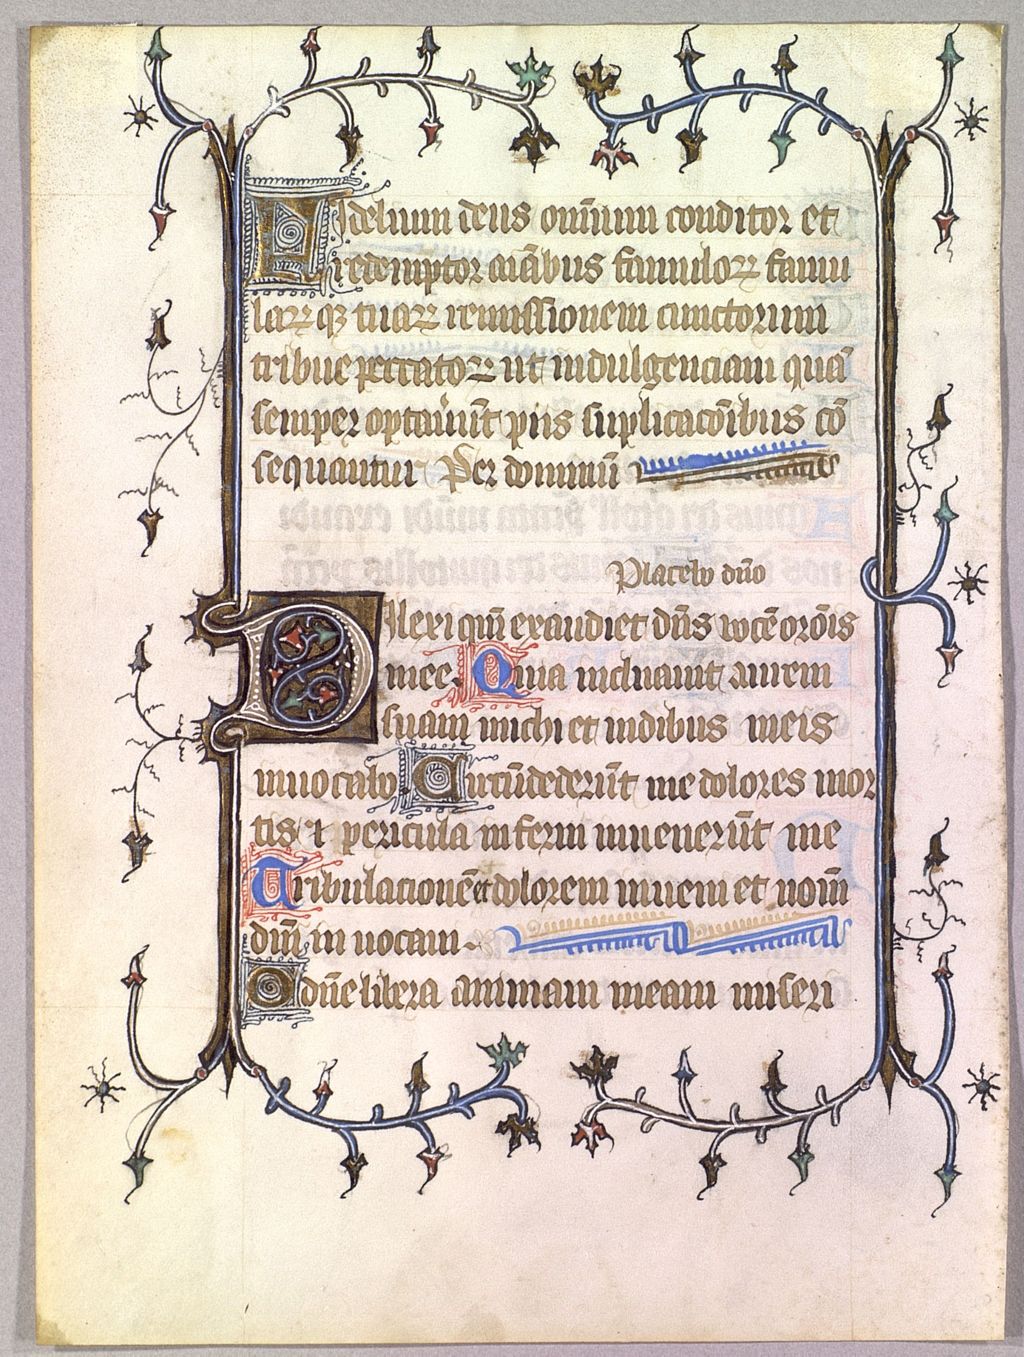 Fidelium deus omniũm conditor et
redemptor aĩabus famuloꝝ famu
laꝝ qꝫ tuaꝝ remissionem cunctorum
tribue peccatoꝝ ut indulgenciam quã
semper optauerũt piis suplicacõibus cõ
sequantur Per dominũ
Placebo dño
Dilexi qm̃ exaudiet dñs vocẽ orõis
mee. Quia inclinauit aurem
suam michi et in dibus meis
inuocabo Circũdederũt me dolores mor
tis ⁊ pericula inferni inuenerũt me
Tribulacionẽ et dolorem inueni et nom̃
dñi in uocaui.
O dñe libera animam meam miseri